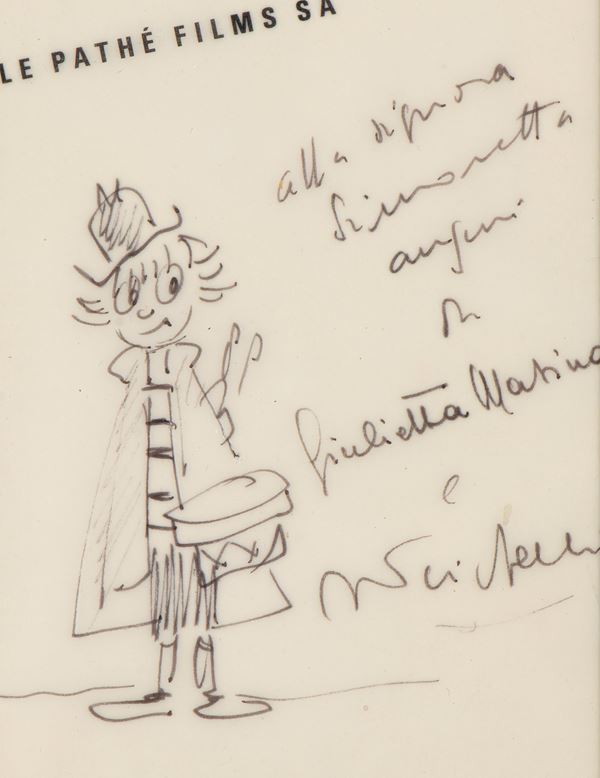 LE PATHÉ FILMS SA
alla signora
Simonetta
auguri
da
Giulietta Masina
e